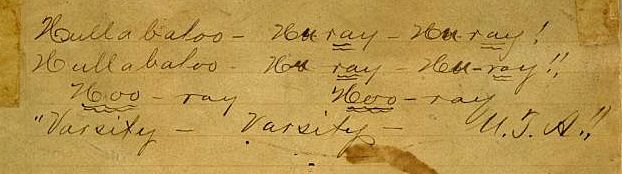 Hullabaloo - Hu ray - Hu ray!
Hullabaloo - Hu ray - Hu-ray!!
Hoo - ray Hoo - ray
"Varsity - Varsity - U. T. A!!